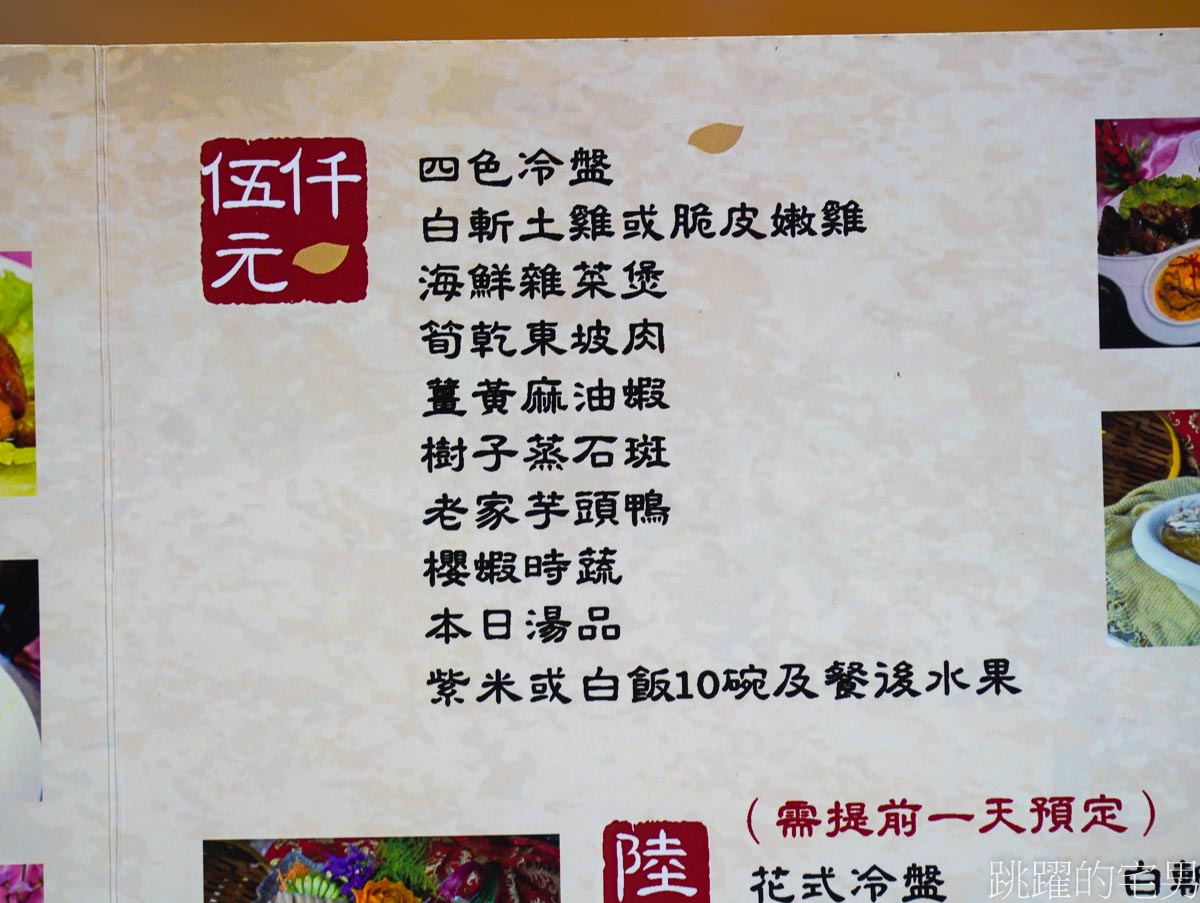 伍仟
元
四色冷盤
白斬土雞或脆皮嫩雞
海鮮雜菜煲
筍乾東坡肉
薑黃麻油蝦
樹子蒸石斑
老家芋頭鴨
櫻蝦時蔬
本日湯品
紫米或白飯10碗及餐後水果
(需提前一天預定)
陸
花式冷盤
白
跳躍的宅男